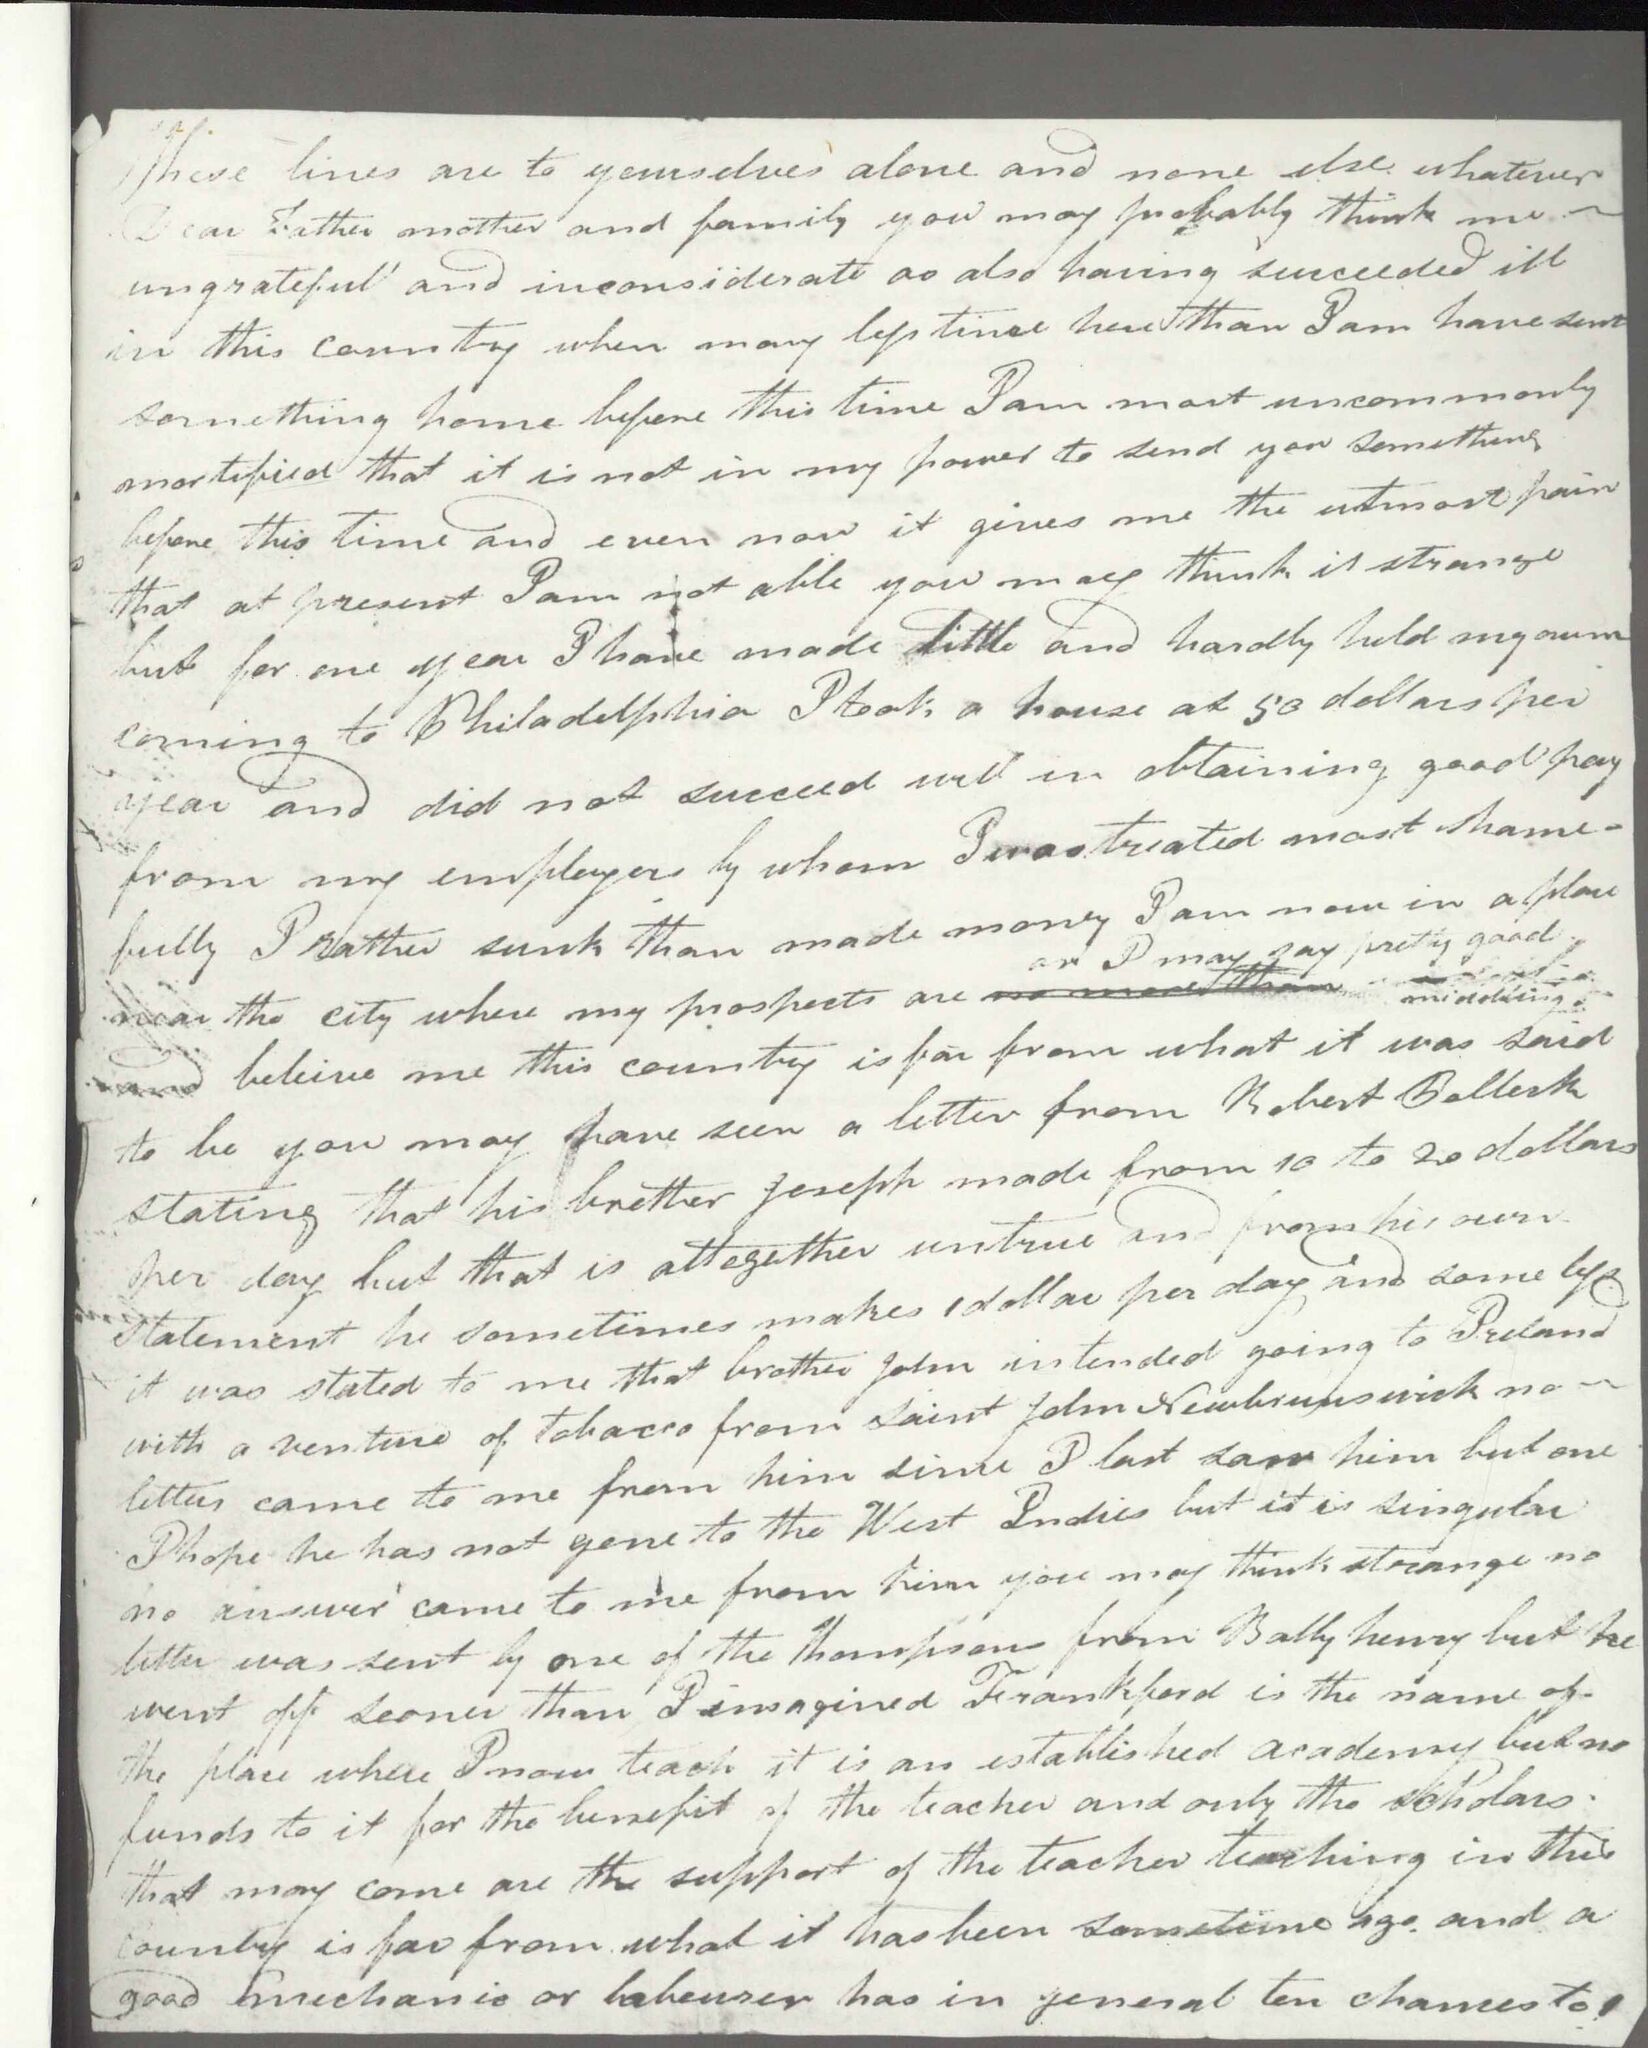 These lines are to yourselves alone and none else whatever
Dear Father mother and family you may probably think me
ungrateful and inconsiderate as also having succeeded ill
in this country when many less time here than I am have sent
something home before this time I am most uncommonly
mortified that it is not in my power to send you something
before this time and even now it gives me the utmost pain
that at present I am not able you may think it strange
but for one year I have made little and hardly held my own
coming to Philadelphia I took a house at 50 dollars per
year and did not succeed well in obtaining good pay
from my employers by whom I was treated most shame-
fully I rather sunk than made money I am now in a place
or I may say pretty good
near the city where my prospects are no more than middling
and beleive me this country is far from what it was said
to be you may have seen a letter from Robert
stating that his brother Joseph made from 10 to 20 dollars
per day but that is altogether untrue and from his own
statement he sometimes makes 1 dollar per day and some less
it was stated to me that brother John intended going to Ireland
with a venture of tobacco from Saint John Newbrunswick no
letters came to me from him since I last saw him but one
I hope he has not gone to the West Indies but it is singular
no answer came to me from him you may think strange no
letter was sent by one of the thompsons from Ballyhenry but he
went off sooner than I imagined Frankford is the name of
the place where I now teach it is an established academy but no
funds to it for the benefit of the teacher and only the scholars
that may come are the support of the teacher teaching in this
country is far from what it has been sometime ago and a
good mechanic or labourer has in general ten chances to 1